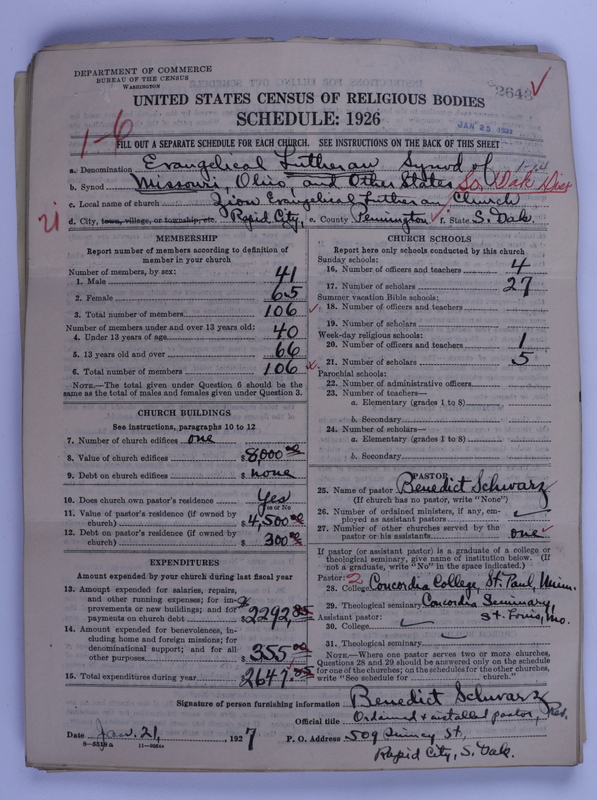 DEPARTMENT OF COMMERCE
BUREAU OF THE CENSUS
WASHINGTON
2643
UNITED STATES CENSUS OF RELIGIOUS BODIES
SCHEDULE: 1926
JAN 25 1927
1-6
FILL OUT A SEPARATE SCHEDULE FOR EACH CHURCH. SEE INSTRUCTIONS ON THE BACK OF THIS SHEET
a. Denomination Evangelical Lutheran Synod of
b. Synod Missouri, Ohio, and Other States So. Dak Dist
c. Local name of church Zion Evangelical Lutheran Church
21
d. City, town, village, or township, etc. Rapid City, e. County Pennington f. State S. Dak.
MEMBERSHIP
Report number of members according to definition of member in your church
Number of members, by sex:
1. Male 41
2. Female 65
3. Total number of members 106
Number of members under and over 13 years old:
4. Under 13 years of age 40
5. 13 years old and over 66
6. Total number of members 106
NOTE.—The total given under Question 6 should be the
same as the total of males and females given under Question 3.
CHURCH BUILDINGS
See instructions, paragraphs 10 to 12
7. Number of church edifices one
8. Value of church edifices $8,000 00
9. Debt on church edifices $ none
10. Does church own pastor's residence Yes
Yes or No
11. Value of pastor's residence (if owned by
church) $4,500 00
12. Debt on pastor's residence (if owned by
church) $ 300 00
EXPENDITURES
Amount expended by your church during last fiscal year
13. Amount expended for salaries, repairs,
and other running expenses; for im-
provements or new buildings; and for
payments on church debt $2292.85
14. Amount expended for benevolences, in-
cluding home and foreign missions; for
denominational support; and for all
other purposes $355 00
15. Total expenditures during year 2647.85
CHURCH SCHOOLS
Report here only schools conducted by this church
Sunday schools:
16. Number of officers and teachers 4
17. Number of scholars 27
Summer vacation Bible schools:
18. Number of officers and teachers
19. Number of scholars
Week-day religious schools:
20. Number of officers and teachers 1
21. Number of scholars 5
Parochial schools:
22. Number of administrative officers
23. Number of teachers—
a. Elementary (grades 1 to 8)
b. Secondary
24. Number of scholars—
a. Elementary (grades 1 to 8)
b. Secondary
PASTOR
25. Name of pastor Benedict Schwarz
(If church has no pastor, write "None")
26. Number of ordained ministers, if any, em-
ployed as assistant pastors
27. Number of other churches served by the
pastor or his assistants one
If pastor (or assistant pastor) is a graduate of a college or
theological seminary, give name of institution below. (If
not a graduate, write "No" in the space indicated.)
Pastor: 2
28. College Concordia College, St. Paul, Minn.
29. Theological seminary Concordia Seminary,
St. Louis, Mo.
Assistant pastor:
30. College
31. Theological seminary
NOTE.—Where one pastor serves two or more churches,
Questions 28 and 29 should be answered only on the schedule
for one of the churches; on schedules for the other churches,
write "See schedule for church."
Signature of person furnishing information Benedict Schwarz
Official title Ordained & installed pastor, Res.
Date Jan. 21, 1927 P. O. Address 509 Quincy St.,
8—5519a 11—9084a
Rapid City, S. Dak.